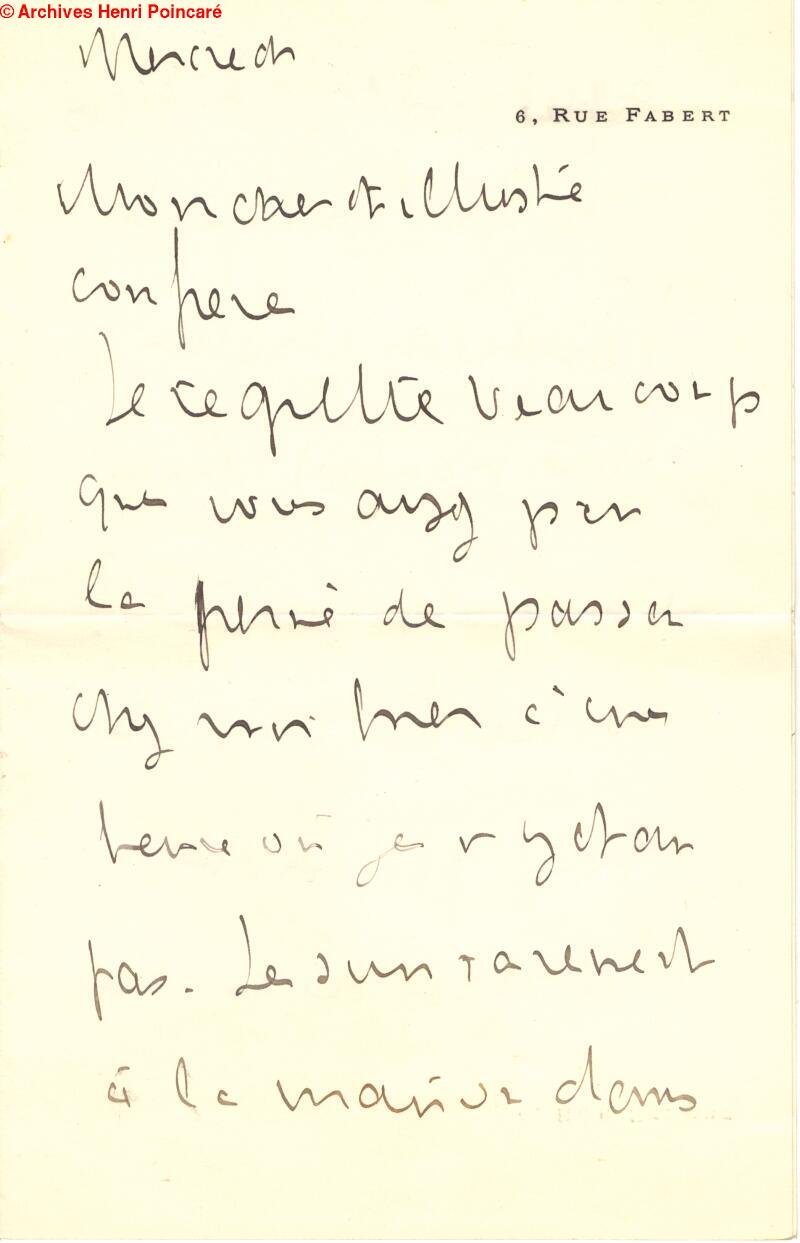 © Archives Henri Poincaré
Mercredi
6, RUE FABERT
Mon cher et illustre
confrère
Je regrette beaucoup
que vous ayez pris
la peine de passer
chez moi hier à une
heure où je n'y étais
pas. Je suis rarement
à la maison dans